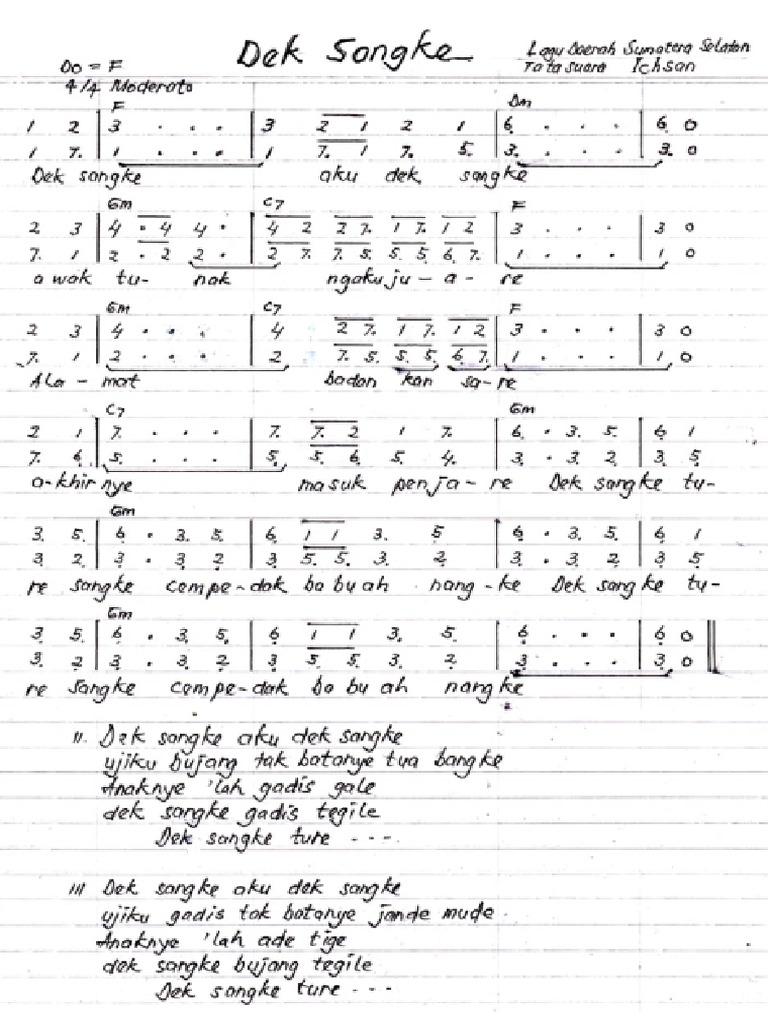 Dek Sangke
Lagu Daerah Sumatera Selatan
Do = F
Tata Suara Ichsan
4/4 Moderato
F Dm
1 2 | 3 . . . | 3 2 1 2 1 | 6 . . . | 6 0
1 7 | 1 . . . | 1 7 1 7 5 | 3 . . . | 3 0
Dek sangke aku dek sangke
Gm C7 F
2 3 | 4 . 4 4 . | 4 2 2 7 1 7 1 2 | 3 . . . | 3 0
7 1 | 2 . 2 2 . | 2 7 7 5 5 5 6 7 | 1 . . . | 1 0
awak tu- nak ngakuju-a- re
Gm C7 F
2 3 | 4 . . . | 4 2 7 1 7 1 2 | 3 . . . | 3 0
7 1 | 2 . . . | 2 7 5 5 5 6 7 | 1 . . . | 1 0
Ala - mat badan kan sa-re
C7 Gm
2 1 | 7 . . . | 7 7 2 1 7 | 6 . 3 5 | 6 1
7 6 | 5 . . . | 5 5 6 5 4 | 3 . 3 2 | 3 5
a-khir nye masuk penja-re Dek sangke tu-
Gm
3 5 | 6 . 3 5 | 6 1 1 3 5 | 6 . 3 5 | 6 1
3 2 | 3 . 3 2 | 3 5 5 3 2 | 3 . 3 2 | 3 5
re sangke cempe-dak babuah nang-ke Dek sangke tu-
Gm
3 5 | 6 . 3 5 | 6 1 1 3 5 | 6 . . . | 6 0
3 2 | 3 . 3 2 | 3 5 5 3 2 | 3 . . . | 3 0
re sangke cempe-dak babuah nangke
II. Dek sangke aku dek sangke
ujiku bujang tak batanye tua bangke
Anaknye 'lah gadis gale
dek sangke gadis tegile
Dek sangke ture ---.
III Dek sangke aku dek sangke
ujiku gadis tak batanye jande mude.
Anaknye 'lah ade tige
dek sangke bujang tegile
Dek sangke ture ---